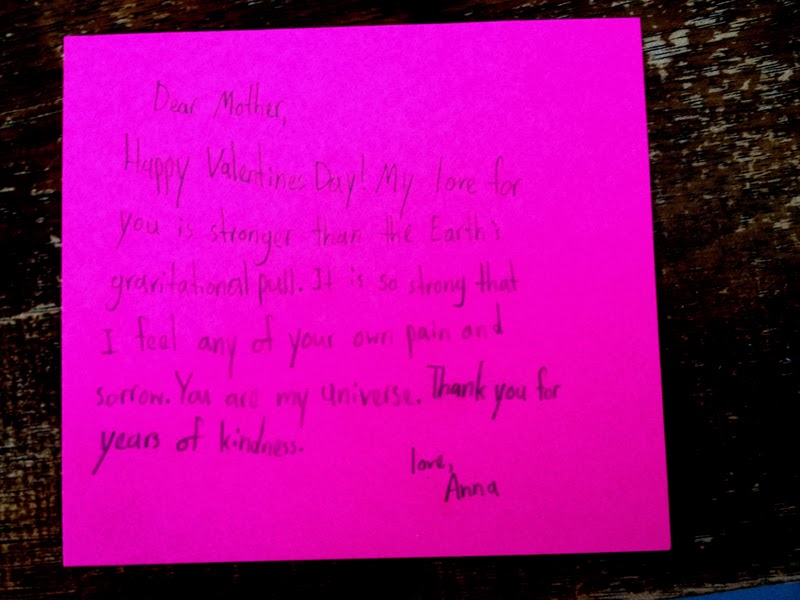 Dear Mother,
Happy Valentines Day! My love for
you is stronger than the Earth's
gravitational pull. It is so strong that
I feel any of your own pain and
sorrow. You are my universe. Thank you for
years of kindness.
love,
Anna